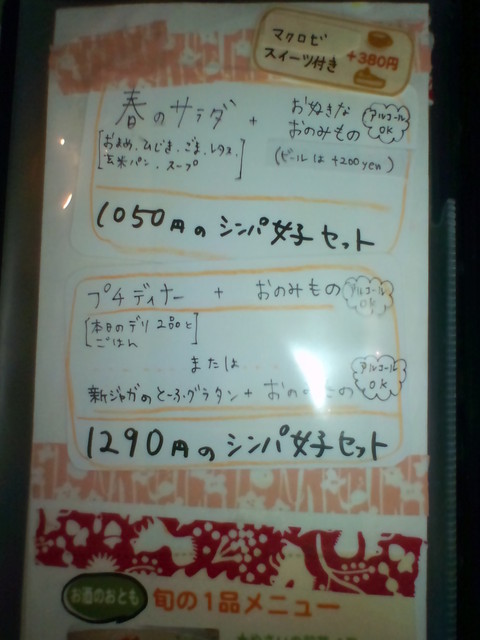 マクロビ
スイーツ付き +380円
春のサラダ + お好きな
おのみもの
アルコール
OK
ひじき、ごま、レタス、
玄米パン、スープ
(ビールは +200yen)
1050円のシンパ女子セット
プチディナー + おのみもの
アルコール
OK
本日のデリ2品と
ごはん
または
アルコール
OK
新ジャガのとーふグラタン +
1290円のシンパ女子セット
お酒のおとも 旬の1品メニュー